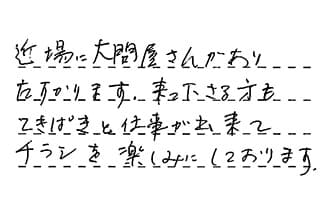 近場に大問屋さんがあり
助かります。来て下さる方も
てきぱきと仕事が出来て
チラシを楽しみにしております。